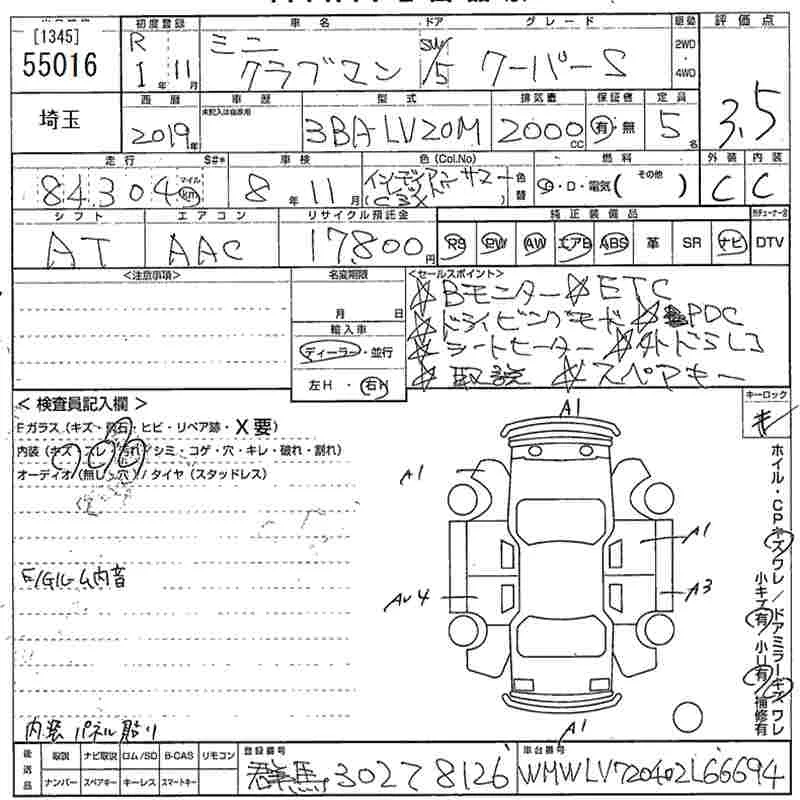 [1345]
55016
埼玉
初度登録 車名 ドア グレード 駆動 評価点
R 1年 11月
ミニ
クラブマン
SW/5
クーパーS
2WD・4WD
3.5
西暦 車歴 型式 排気量 保証書 定員
2019年
未記入は自家用
3BA-LV20M
2000cc
有・無
5名
走行 S#* 車検 色(Col.No) 燃料 外装 内装
84304 マイル km
8年 11月
インディアンサマー
レッド
(C3X)
色替
G・D・電気( その他 )
C C
シフト エアコン リサイクル預託金 純正装備品
AT AAC 17,800円
PS PW AW エアB ABS 革 SR ナビ DTV
<注意事項>
名変期限
月 日
輸入車
ディーラー・並行
左H・右H
<セールスポイント>
☆Bモニター☆ETC
☆ドライビングモード☆PDC
☆シートヒーター
☆取説 ☆スペアキー
キーロック
キ
<検査員記入欄>
Fガラス(キズ・飛石・ヒビ・リペア跡・X要)
内装(キズ・スレ・汚れ/シミ・コゲ・穴・キレ・破れ・割れ)
オーディオ(無し・穴)/タイヤ(スタッドレス)
内装 パネル貼り
A1
A1
A1
AU4
A3
A1
ホイル・CPキズワレ/ドアミラーキズワレ
小キズ有 小U有 補修有
後送品
取説 ナビ取説 ロム/SD B-CAS リモコン
ナンバー スペアキー キーレス スマートキー
登録番号
群馬 302 て 8126
車台番号
WMWLV720402L66694